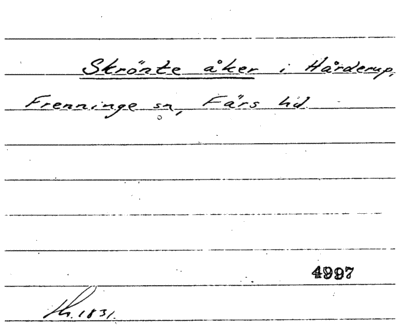 Skrönte åker i Hårderup,
Frenninge sn, Färs hd
4997
1831.